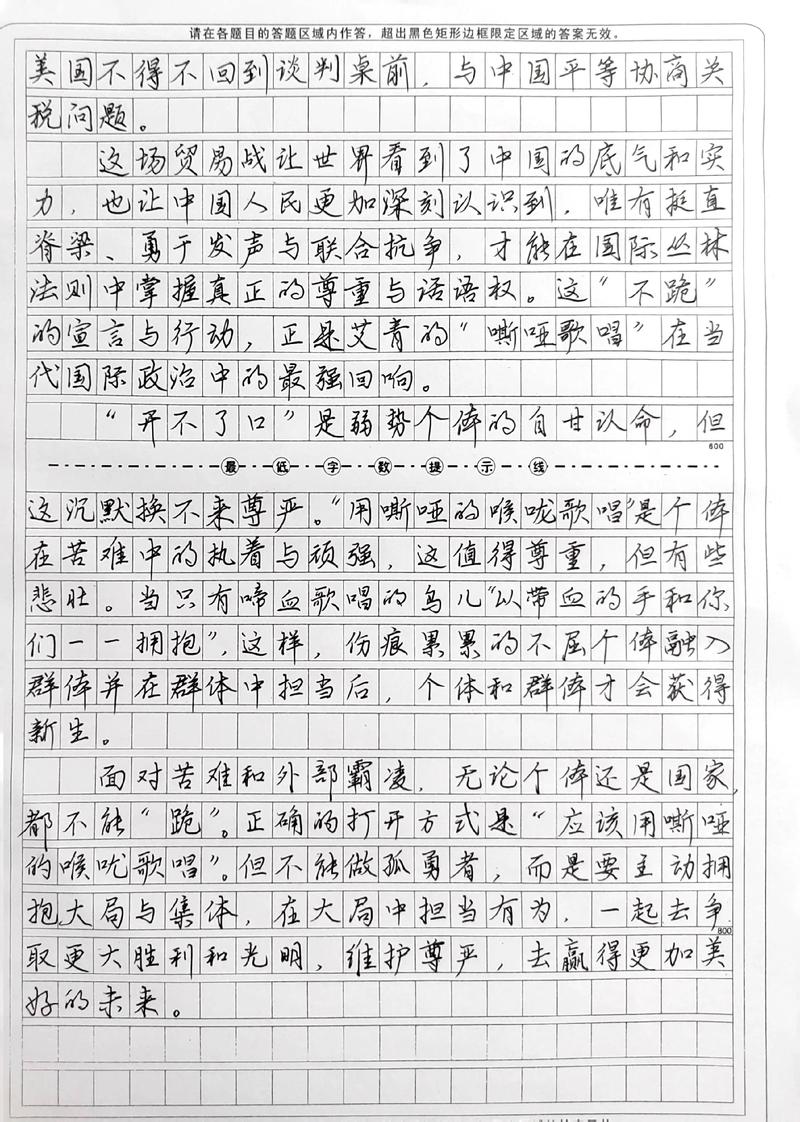 请在各题目的答题区域内作答，超出黑色矩形边框限定区域的答案无效。
美国不得不回到谈判桌前，与中国平等协商关
税问题。
这场贸易战让世界看到了中国的底气和实
力，也让中国人民更加深刻认识到，唯有挺直
脊梁、勇于发声与联合抗争，才能在国际丛林
法则中掌握真正的尊重与话语权。这“不跪”
的宣言与行动，正是艾青的“嘶哑歌唱”在当
代国际政治中的最强回响。
“开不了口”是弱势个体的自甘认命，但
600
最低字数提示线
这沉默换不来尊严。“用嘶哑的喉咙歌唱”是个体
在苦难中的执着与顽强，这值得尊重，但有些
悲壮。当只有啼血歌唱的鸟儿“以带血的手和你
们一一拥抱”，这样，伤痕累累的不屈个体融入
群体并在群体中担当后，个体和群体才会获得
新生。
面对苦难和外部霸凌，无论个体还是国家，
都不能“跪”。正确的打开方式是“应该用嘶哑
的喉咙歌唱”。但不能做孤勇者，而是要主动拥
抱大局与集体，在大局中担当有为，一起去争
800
取更大胜利和光明，维护尊严，去赢得更加美
好的未来。